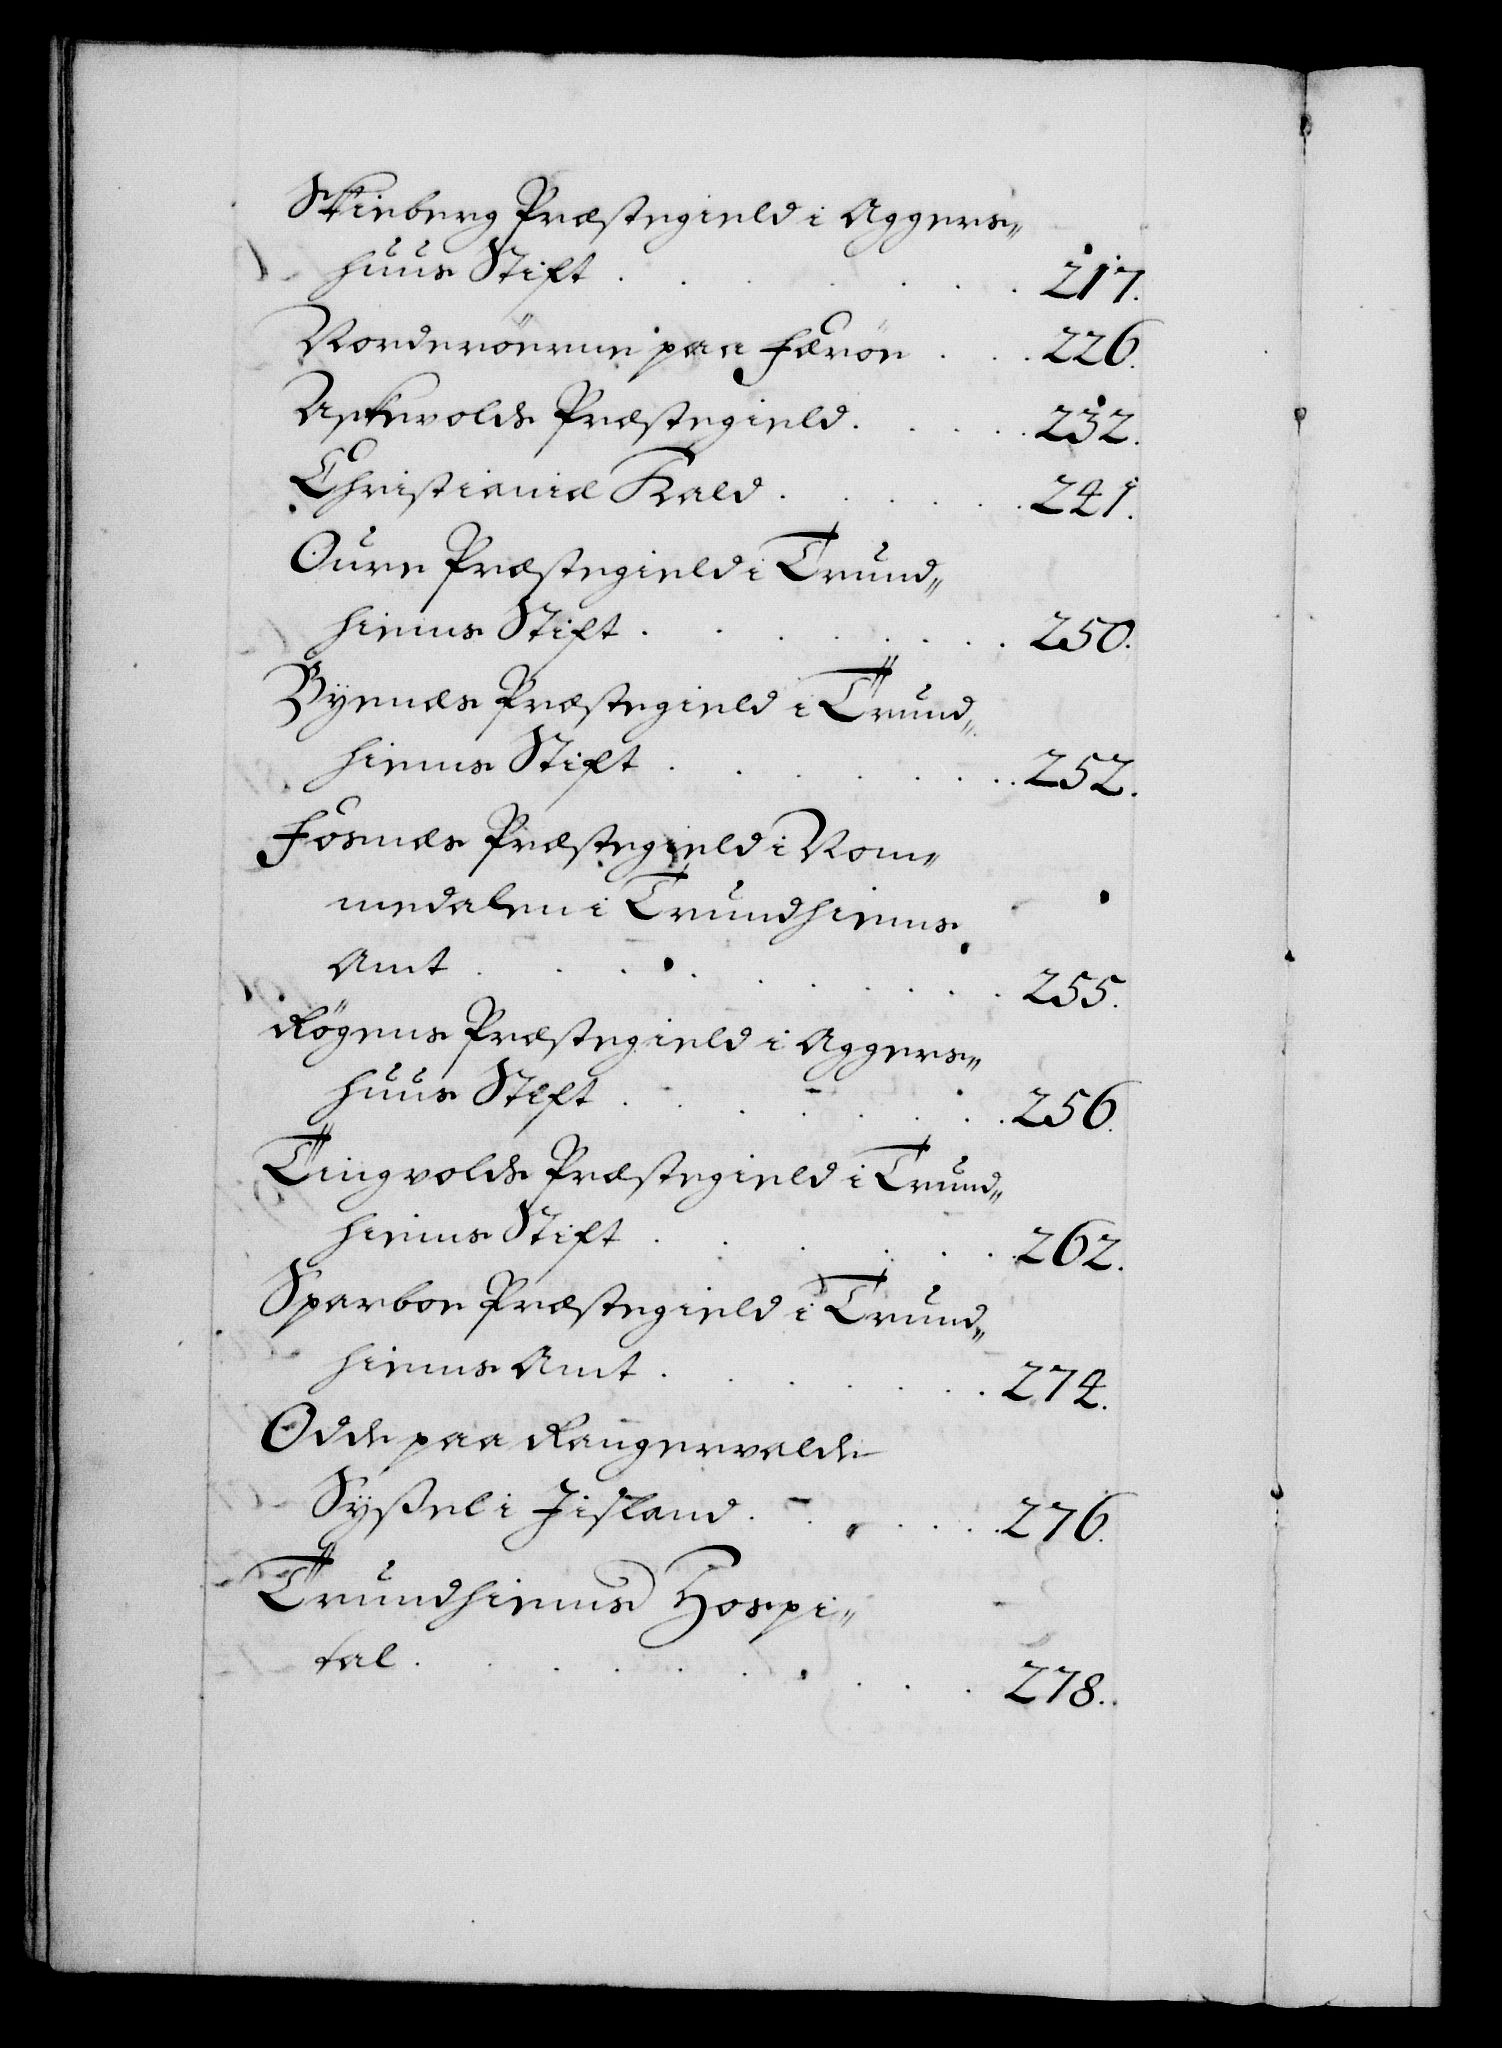 Skieberg Præstegield i Aggers„
huus Stift . . . . . . . 217.
Norderöerne paa Færöe . . . 226.
Askevolds Præstegield . . . . 232.
Christianiæ Kald . . . . . 241.
Oure Præstegield i Trund„
hiems Stift . . . . . . . 250.
Byenæs Præstegield i Trund„
hiems Stift . . . . . . . 252.
Fosnæs Præstegield i Nom„
medalen i Trundhiems
Amt . . . . . . . . . 255.
Røgens Præstegield i Aggers„
huus Stift . . . . . . . 256.
Tingvolds Præstegield i Trund„
hiems Stift . . . . . . . 262.
Sparboe Præstegield i Trund„
hiems Amt . . . . . . 274.
Odde paa Rangervalde
Syßel i Jisland . . . . . . 276.
Trundhiems Hospi„
tal . . . . . . . . . 278.